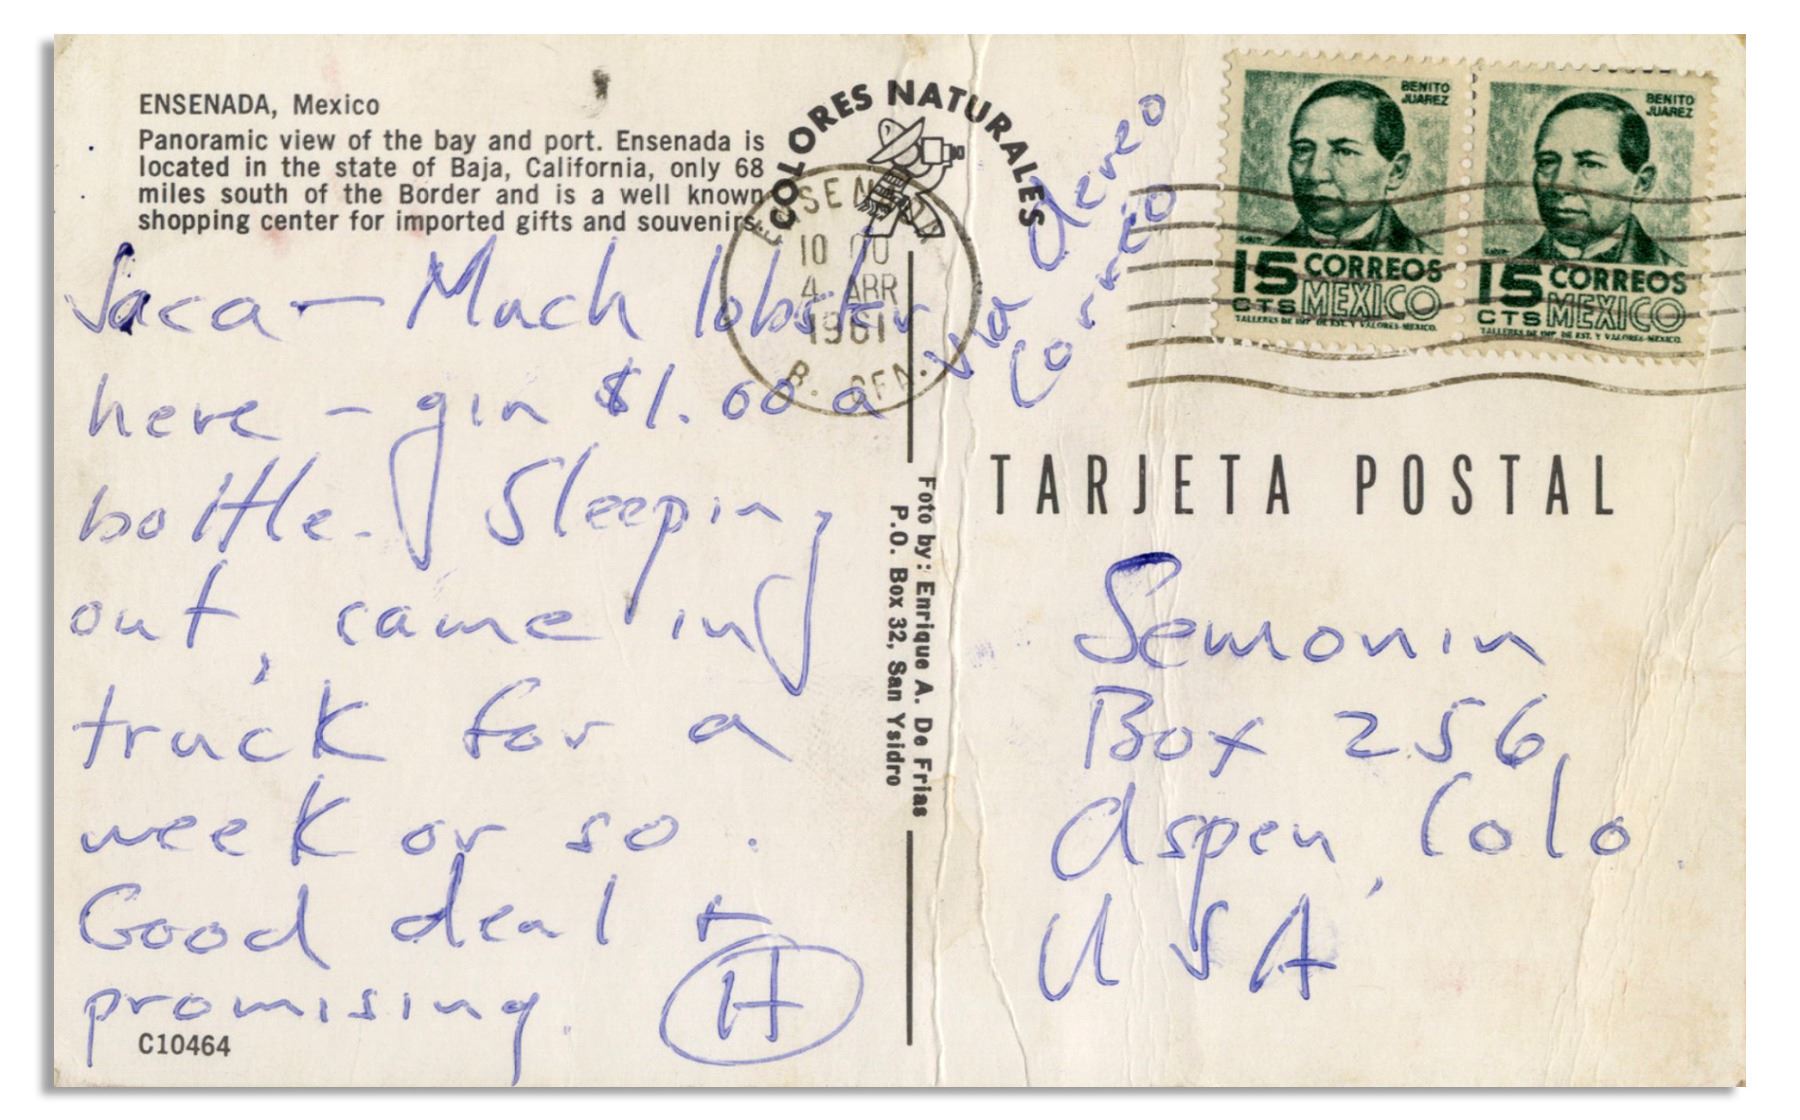 ENSENADA, Mexico
Panoramic view of the bay and port. Ensenada is
located in the state of Baja, California, only 68
miles south of the Border and is a well known
shopping center for imported gifts and souvenirs.
Saca — Much lobster
here - gin $1.00 a
bottle. Sleeping
out, came in
truck for a
week or so.
Good deal +
promising. H
C10464
COLORES NATURALES
ENSENADA
10 00
4 ABR
1961
B. CFA.
Via Aereo
Correo
BENITO
JUAREZ
15 CORREOS
CTS MEXICO
TALLERES DE IMP. DE EST. Y VALORES-MEXICO.
BENITO
JUAREZ
15 CORREOS
CTS MEXICO
TALLERES DE IMP. DE EST. Y VALORES-MEXICO.
Foto by: Enrique A. De Frias
P.O. Box 32, San Ysidro
TARJETA POSTAL
Semonin
Box 256
Aspen, Colo.
USA